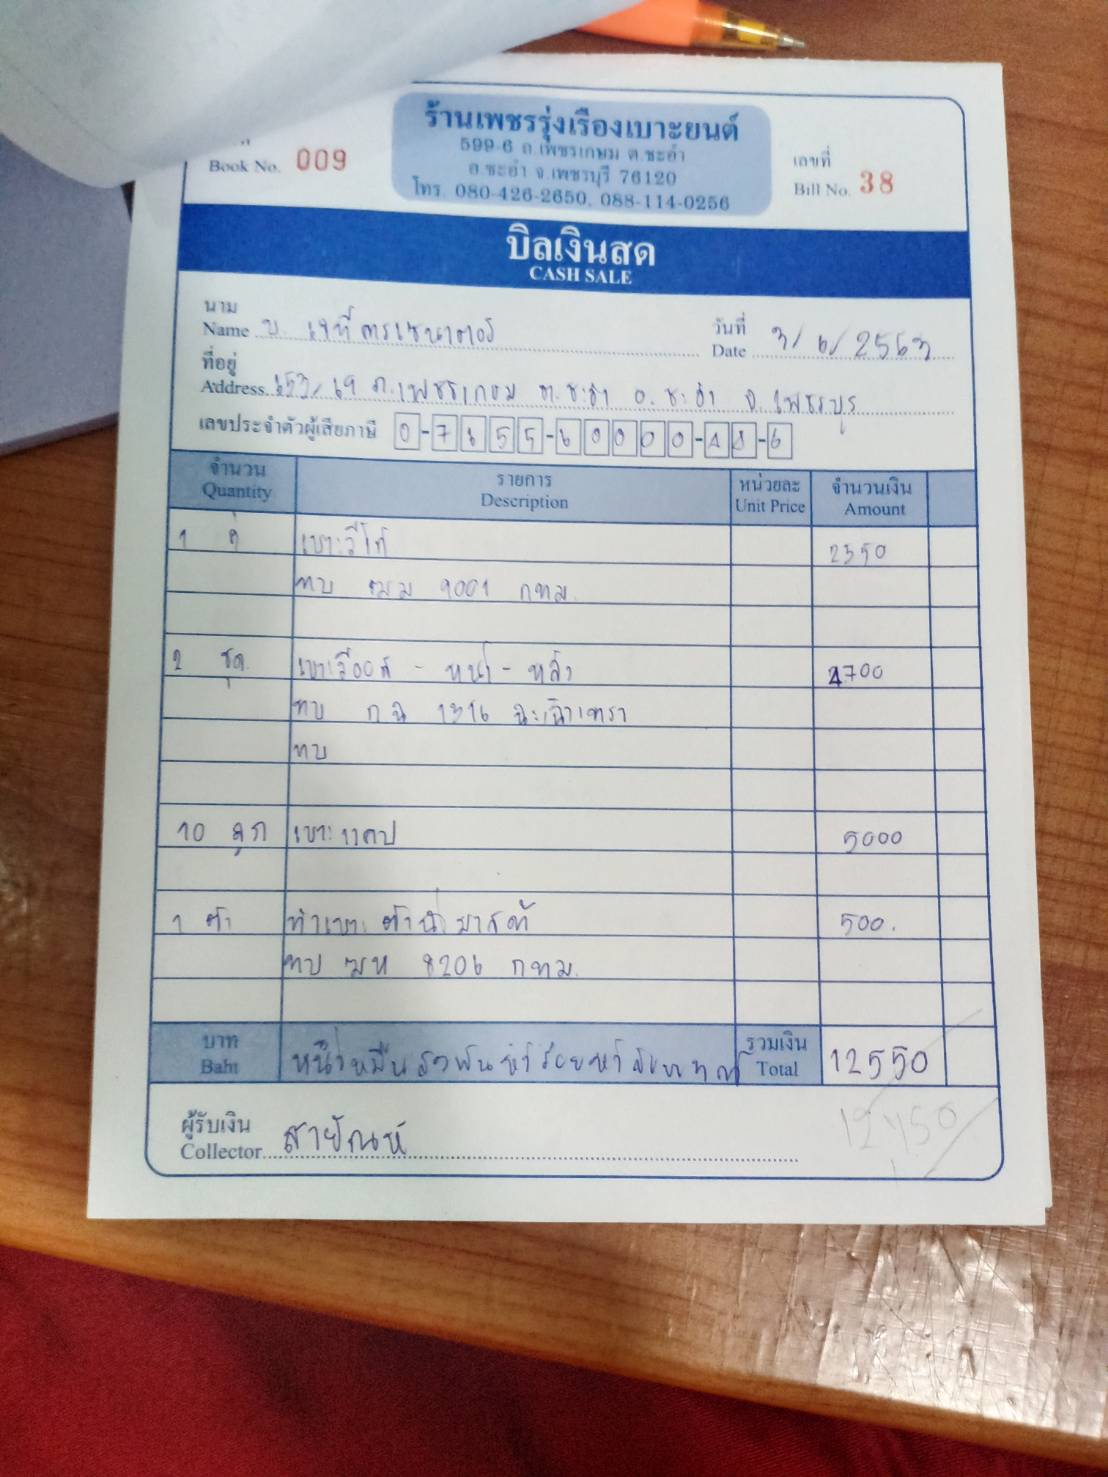 ร้านเพชรรุ่งเรืองเบาะยนต์
599-6 ถ.เพชรเกษม ต.ชะอำ
อ.ชะอำ จ.เพชรบุรี 76120
โทร. 080-426-2650, 088-114-0256
Book No. 009
เลขที่
Bill No. 38
บิลเงินสด
CASH SALE
นาม
Name บ.
วันที่
Date 3/6/2563
ที่อยู่
Address ถ.เพชรเกษม ต.ชะอำ อ.ชะอำ จ.เพชรบุร
เลขประจำตัวผู้เสียภาษี
จำนวน รายการ หน่วยละ จำนวนเงิน
Quantity Description Unit Price Amount
1 คู่ เบาะวีโก้ 2350
ทบ ฒม 9001 กทม.
2 ชุด เบาะวีออส - หน้า - หลัง 4700
ทบ กฉ 1316 ฉะเชิงเทรา
ทบ
10 ลูก เบาะแคป 5000
1 ตัว ทำเบาะ ตัวนั่ง มาสด้า 500.
ทบ ฒห 8206 กทม.
บาท รวมเงิน
Baht หนึ่งหมื่นสองพันห้าร้อยห้าสิบบาท Total 12550
12450
ผู้รับเงิน
Collector สายัณห์